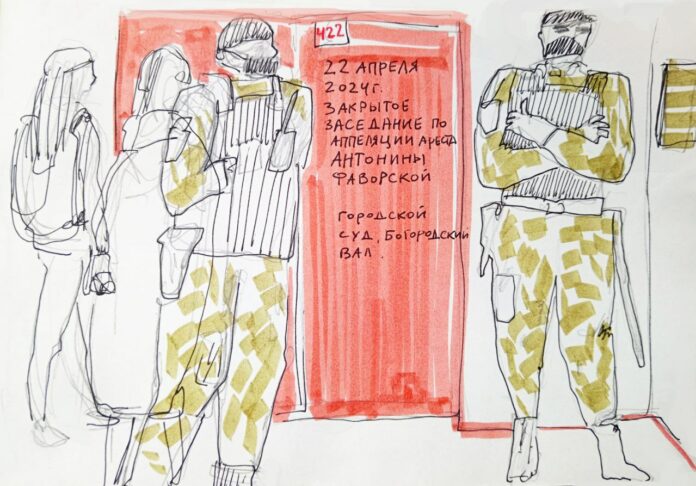 422
22 АПРЕЛЯ
2024г.
ЗАКРЫТОЕ
ЗАСЕДАНИЕ ПО
АППЕЛЯЦИИ АРЕСТА
АНТОНИНЫ
ФАВОРСКОЙ
ГОРОДСКОЙ
СУД, БОГОРОДСКИЙ
ВАЛ.